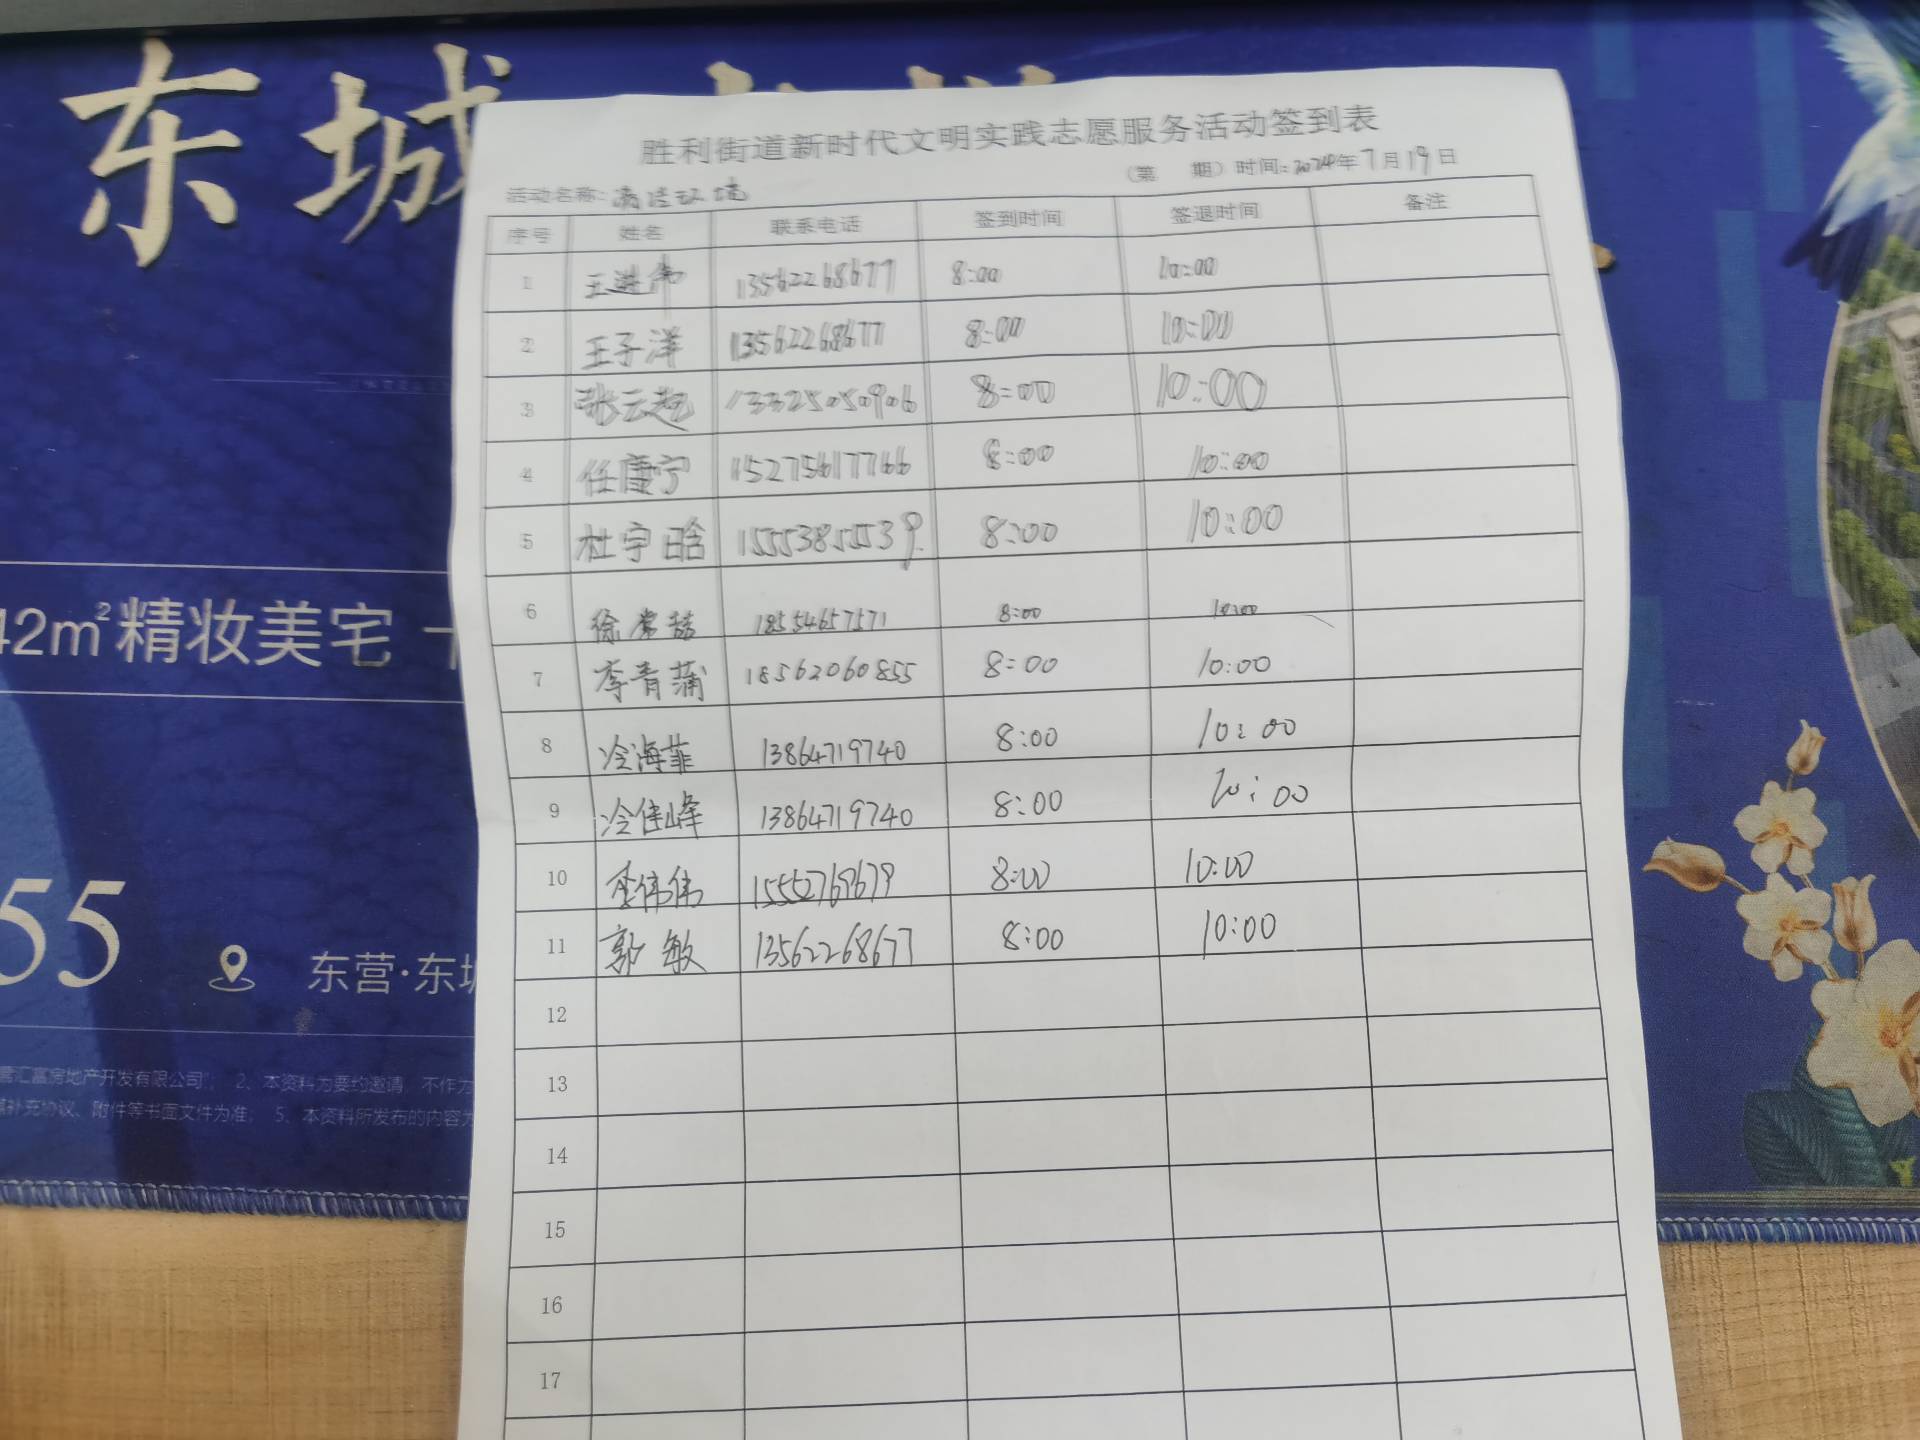 东城
胜利街道新时代文明实践志愿服务活动签到表
(第 期) 时间:2024年7月19日
活动名称:清洁环境
序号 姓名 联系电话 签到时间 签退时间 备注
1 王进伟 13562268677 8:00 10:00
2 王子洋 13562268677 8:00 10:00
3 张云起 13325050906 8:00 10:00
4 任康宁 15275617766 8:00 10:00
5 杜宇晗 15553855539 8:00 10:00
6 徐常喆 18554657571 8:00 10:00
7 李青蒲 18562060855 8:00 10:00
8 冷海菲 13864719740 8:00 10:00
9 冷佳峰 13864719740 8:00 10:00
10 李伟伟 15552769679 8:00 10:00
11 郭敏 13562268677 8:00 10:00
12
13
14
15
16
17
42m²精妆美宅
55
东营·东城
营汇富房地产开发有限公司; 2、本资料为要约邀请,不作为
补充协议、附件等书面文件为准; 5、本资料所发布的内容为